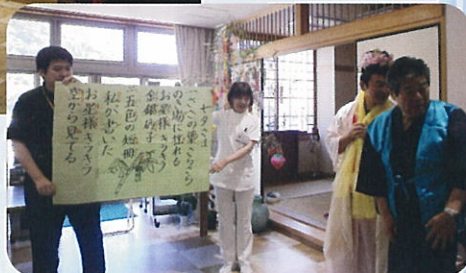 七夕さま
ささの葉さらさら
のきばに揺れる
お星様キラキラ
金銀砂子
五色の短冊
私が書いた
お星様キラキラ
空から見てる